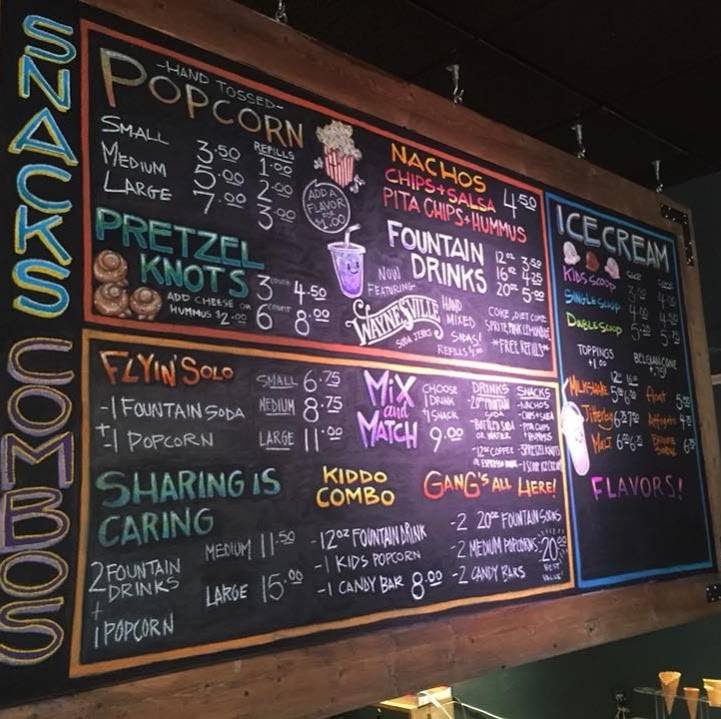 SNACKS
-HAND TOSSED-
POPCORN
REFILLS
SMALL 3.50 1.00
MEDIUM 5.00 2.00
LARGE 7.00 3.00
ADD A
FLAVOR
FOR
$1.00
PRETZEL
KNOTS
3 COUNT 4.50
6 COUNT 8.00
ADD CHEESE OR
HUMMUS $2.00
NACHOS
CHIPS+SALSA 4.50
PITA CHIPS+HUMMUS
FOUNTAIN
DRINKS
12oz 3.50
16oz 4.25
20oz 5.00
NOW
FEATURING-
WAYNESVILLE
SODA JERKS
HAND
MIXED
SODAS!
REFILLS
COKE, DIET COKE
SPRITE, PINK LEMONADE
*FREE REFILLS*
ICE CREAM
KIDS SCOOP
SINGLE SCOOP
DOUBLE SCOOP
TOPPINGS
+1.00
BELGIAN CONE
12oz 16oz
MILKSHAKE
Float
Jitterbug
Affogato
MALT
FLAVORS!
COMBOS
FLYIN' SOLO
-1 FOUNTAIN SODA
+
-1 POPCORN
SMALL 6.75
MEDIUM 8.75
LARGE 11.00
MiX
and
MATCH
CHOOSE
1 DRINK
1 SNACK
9.00
DRINKS
-20oz FOUNTAIN
SODA
-BOTTLED SODA
OR WATER
-12oz COFFEE
SNACKS
-NACHOS
-CHIPS+SALSA
-PITA CHIPS
+HUMMUS
-PRETZEL KNOTS
SHARING IS
CARING
2 FOUNTAIN
DRINKS
+
1 POPCORN
MEDIUM 11.50
LARGE 15.00
KIDDO
COMBO
-12oz FOUNTAIN DRINK
-1 KIDS POPCORN
-1 CANDY BAR 8.00
GANG'S ALL HERE!
-2 20oz FOUNTAIN SODAS
-2 MEDIUM POPCORNS
-2 CANDY BARS
20.00
BEST
VALUE!